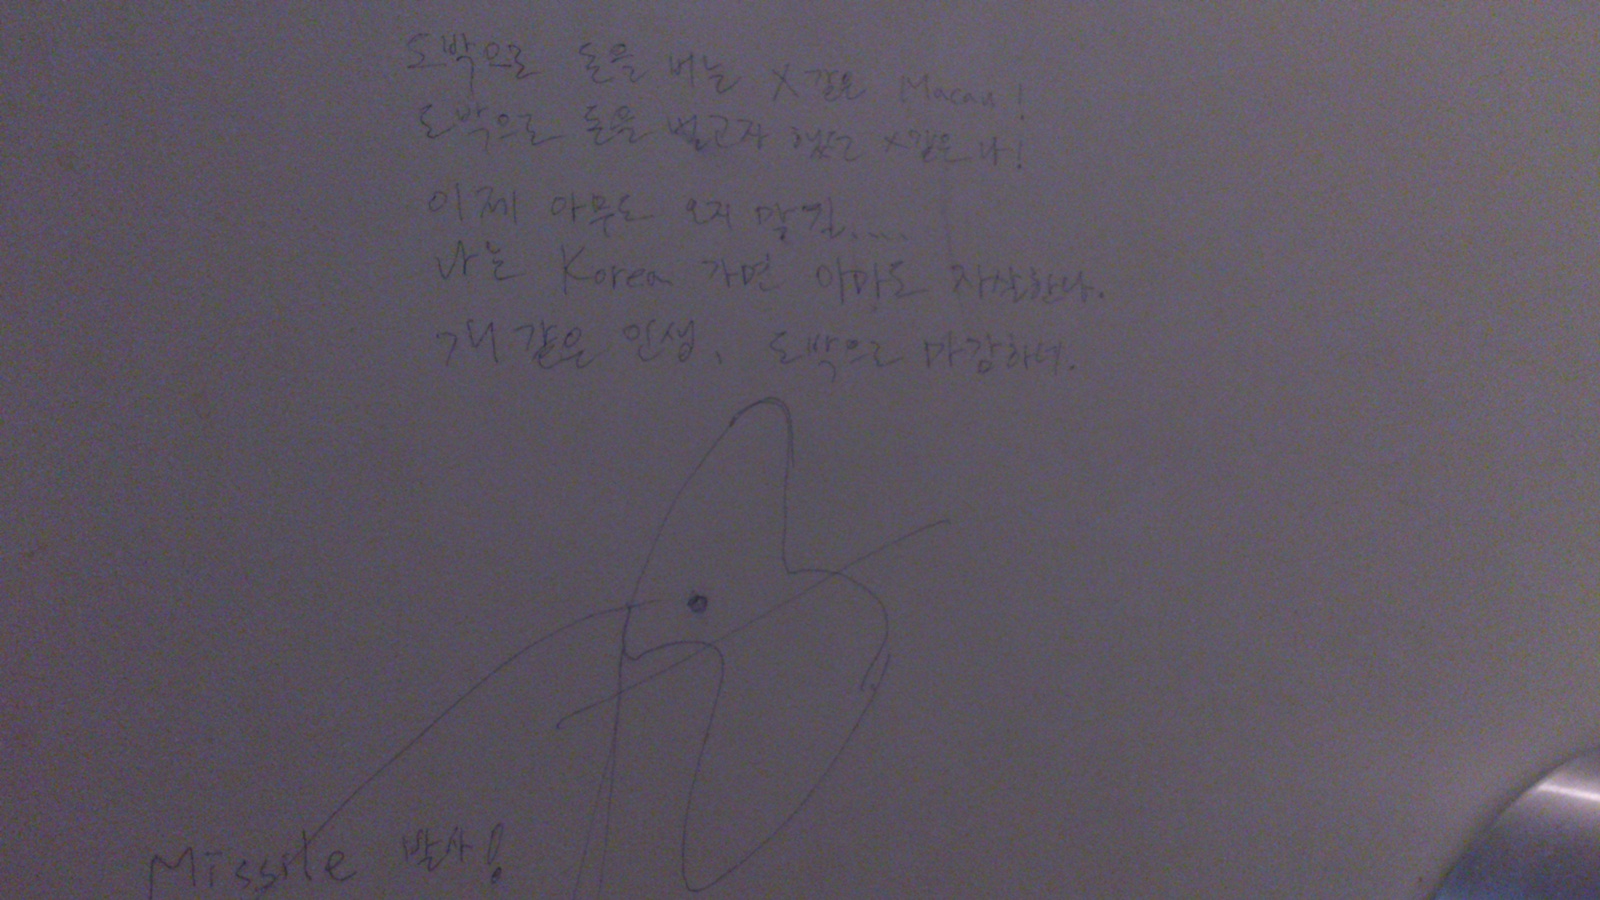 도박으로 돈을 버는 X같은 Macau!
도박으로 돈을 벌고자 했던 X같은 나!
이제 아무도 오지 말길....
나는 Korea 가면 아마도 자살한다.
개 같은 인생, 도박으로 마감하네.
Missile 발사!